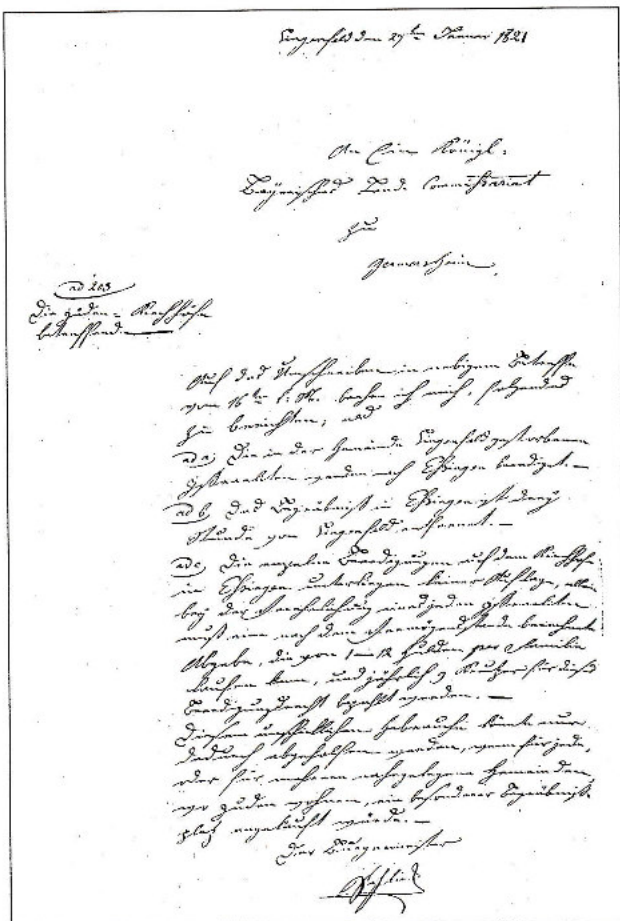 Lingenfeld den 29ten Januar 1821
An Ein Königl:
Bayerisches Land Commissariat
zu
Germersheim
ad 203
Die Juden-Kirchhöfe
betreffend.
Auf das Umschreiben in nebigem Betreffe
vom 16ten l. M. beehre ich mich, folgendes
zu berichten,
ad a, Die in der Gemeinde Lingenfeld gestorbenen
Israeliten werden nach Essingen beerdiget. —
ad b, das Begräbniß in Essingen ist drey
Stunde von Lingenfeld entfernet. —
ad c, Die einzelne Beerdigungen auf dem Kirchhofe
in Essingen unterliegen keiner Auflage, allein
bey der Verehelichung eines jeden Israeliten
muß eine nach dem Vermögensstande berechnete
Abgabe, die von 1–12 Gulden per Familie
laufen kann, und jährlich 9 Kreutzer für dieses
Beerdigungsrecht bezahlt werden. —
Diesem Gebrauche könnte nur
dadurch abgeholfen werden, wenn für jede,
oder für mehrere nahegelegene Gemeinden,
wo Juden wohnen, ein besonderer Begräbniß-
platz angekauft würde. —
Der Bürgermeister